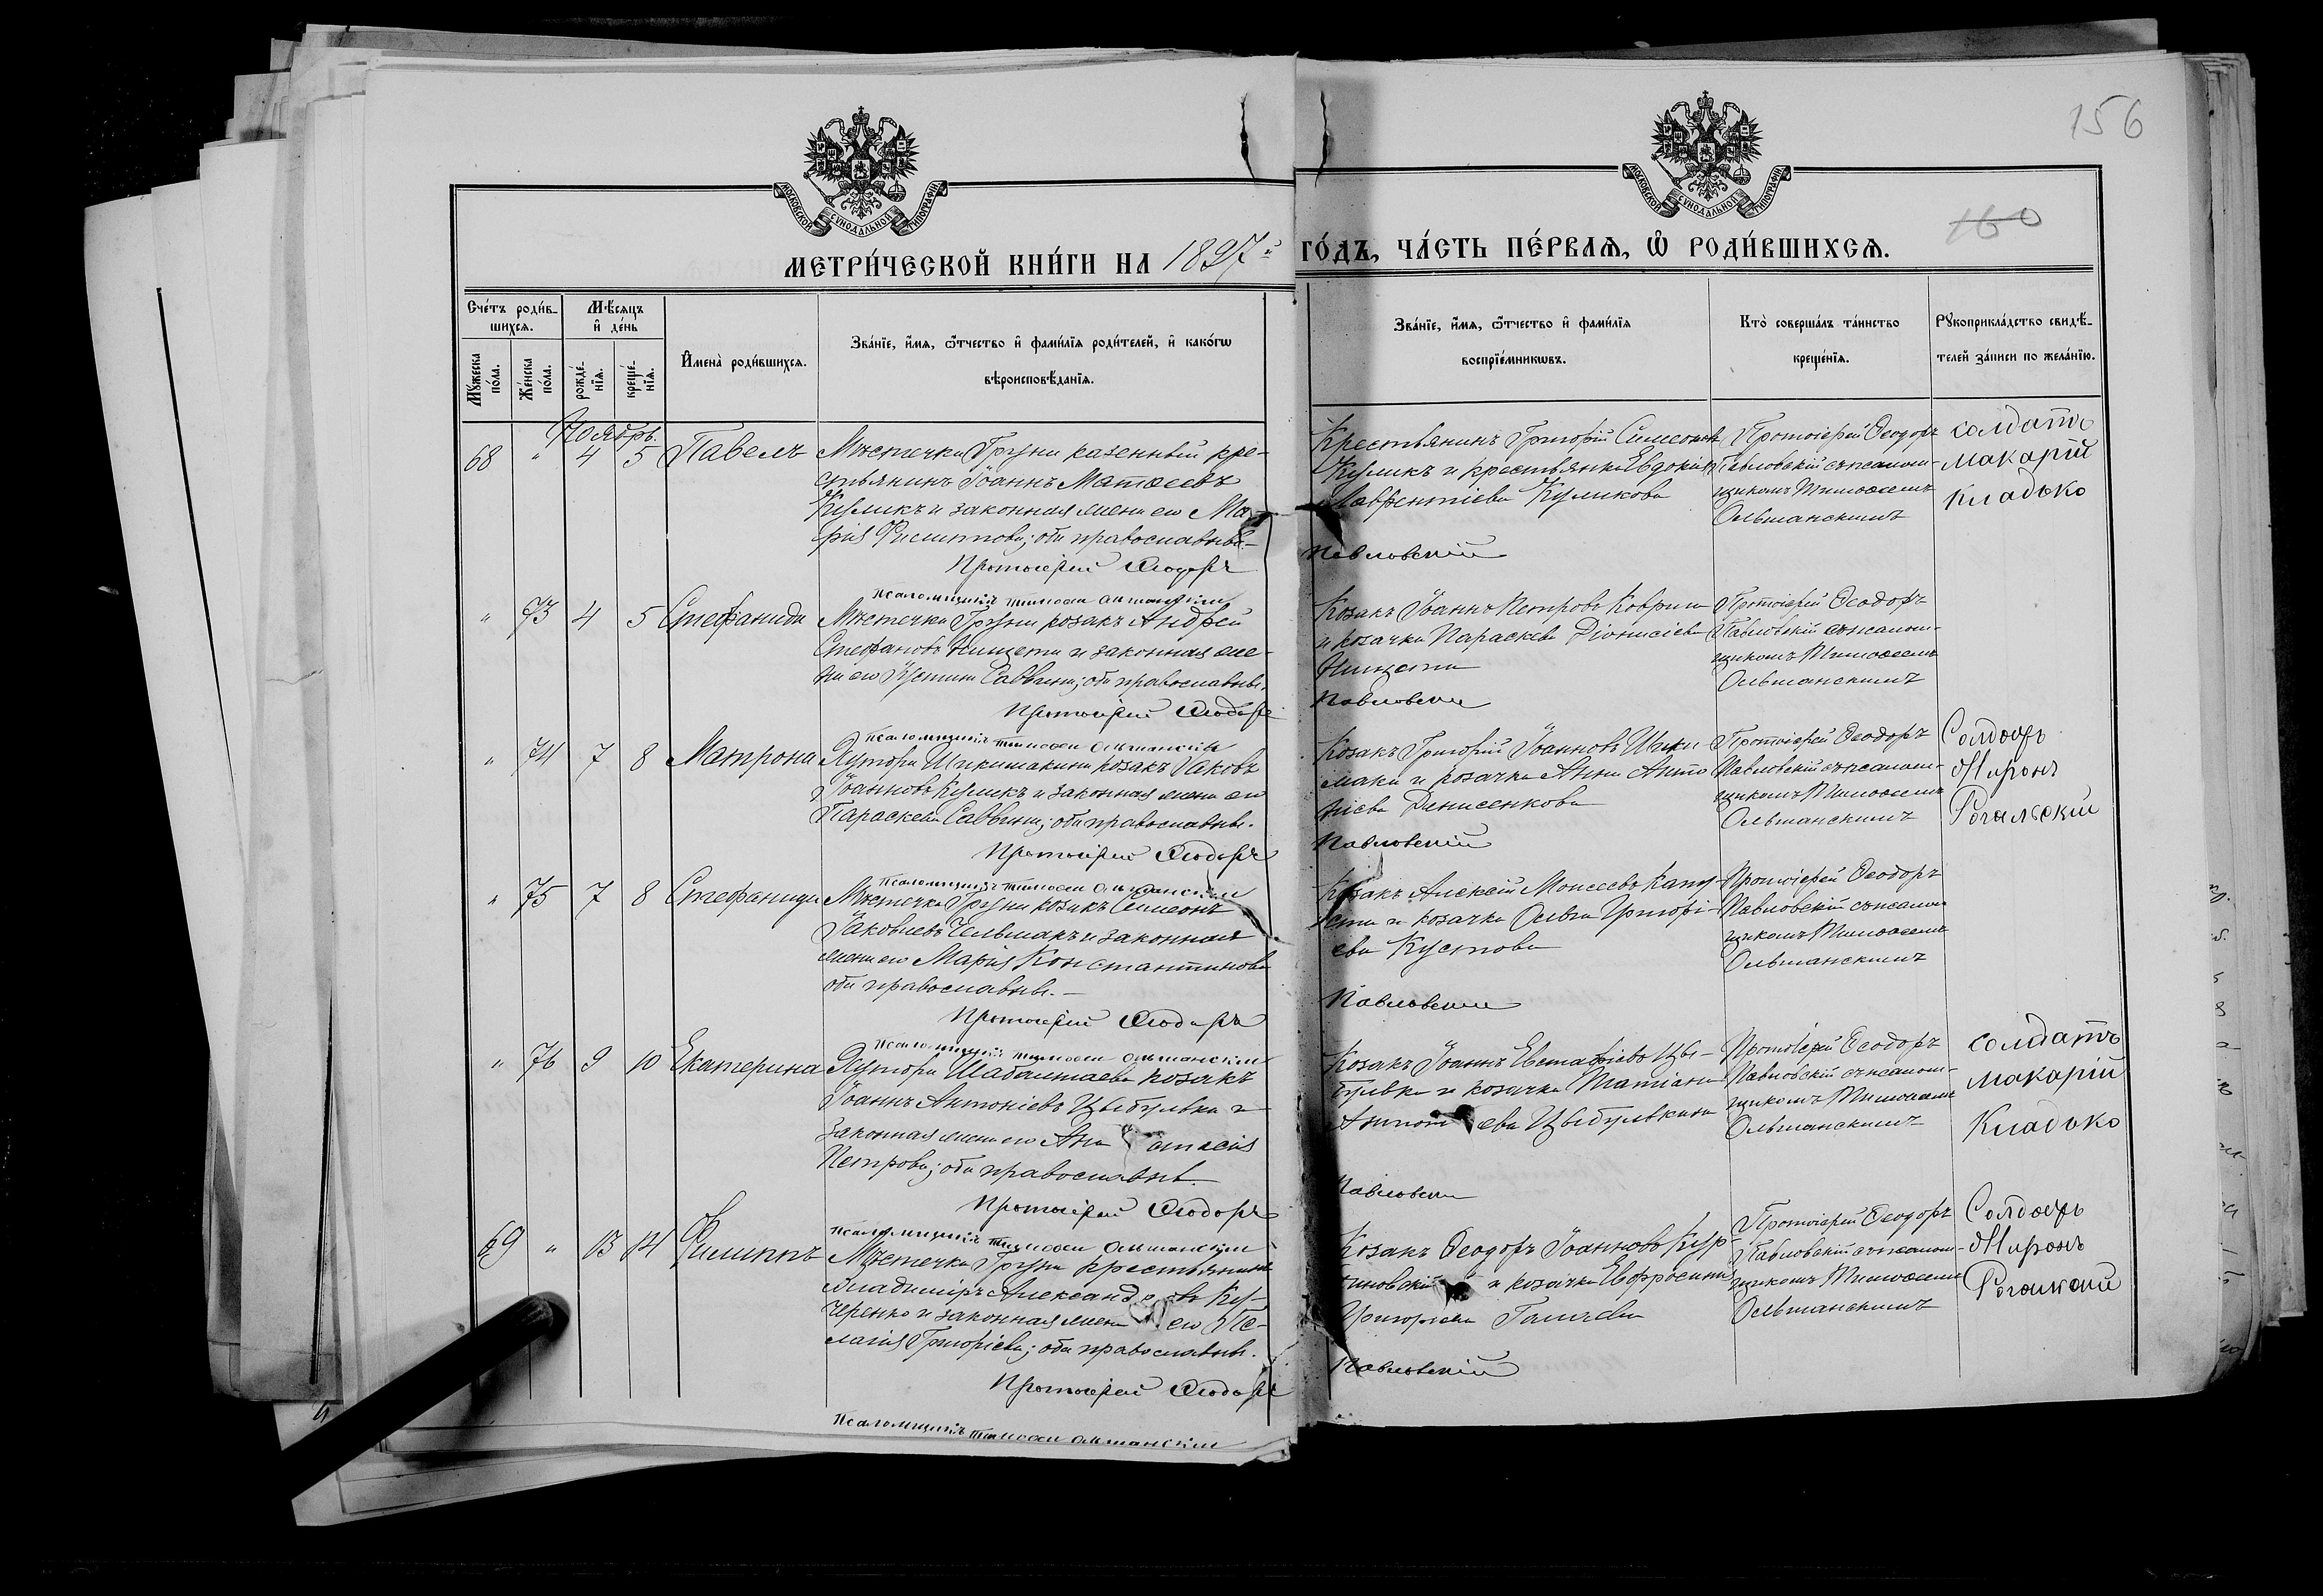 156
160
МОСКОВСКОЙ СѴНОДАЛЬНОЙ ТИПОГРАФІИ
МОСКОВСКОЙ СѴНОДАЛЬНОЙ ТИПОГРАФІИ
МЕТРИ́ЧЕСКОЙ КНИ́ГИ НА 1897й ГО́ДЪ, ЧА́СТЬ ПЕ́РВАѦ, Ѡ҆ РОДИ́ВШИХСѦ.
Сче́тъ роди́в-
шихся.
Мѣ́сяцъ
и҆ де́нь
Мꙋ́жеска
по́ла.
Же́нска
по́ла.
рожде́-
нїя.
креще́-
нїя.
И҆мена̀ роди́вшихся.
Зва́нїе, и҆́мѧ, ѻ҆́тчество и҆ фами́лїѧ роди́телей, и҆ како́гѡ
вѣроисповѣ́данїѧ.
Зва́нїе, и҆́мѧ, ѻ҆́тчество и҆ фами́лїѧ
воспрїе́мникѡвъ.
Кто̀ соверша́лъ та́инство
креще́нїѧ.
Рꙋкоприкла́дство свидѣ́-
телей за́писи по жела́нїю.
Ноябрь.
68 " 4 5 Павелъ
Мѣстечка Груни казенный кре-
стьянинъ Іоаннъ Матѳеевъ
Куликъ и законная жена его Ма-
рія Филиппова; оба православные.
Протоіерей Ѳеодоръ Павловскій
Псаломщикъ Тимоѳей Ольшанскій
Крестьянинъ Григорій Симеоновъ
Куликъ и крестьянка Евдокія
Лаврентіева Куликова
Протоіерей Ѳеодоръ
Павловскій съ псалом-
щикомъ Тимоѳеемъ
Ольшанскимъ
солдатъ
Макарій
Кладько
" 73 4 5 Стефанида
Мѣстечка Груни козакъ Андрей
Стефановъ Нищета и законная же-
на его Іустина Саввина; оба православные.
Протоіерей Ѳеодоръ Павловскій
Псаломщикъ Тимоѳей Ольшанскій
Козакъ Іоаннъ Петровъ
и козачка Параскева Діонисіева
Нищета
Протоіерей Ѳеодоръ
Павловскій съ псалом-
щикомъ Тимоѳеемъ
Ольшанскимъ
" 74 7 8 Матрона
Хутора Шкимакина козакъ Іаковъ
Іоанновъ Куликъ и законная жена его
Параскева Саввина; оба православные.
Протоіерей Ѳеодоръ Павловскій
Псаломщикъ Тимоѳей Ольшанскій
Козакъ Григорій Іоанновъ
и козачка Анна Анто-
ніева Денисенкова
Протоіерей Ѳеодоръ
Павловскій съ псалом-
щикомъ Тимоѳеемъ
Ольшанскимъ
Миронъ
Рогальскій
" 75 7 8 Стефанида
Мѣстечка Груни козакъ Симеонъ
Іаковлевъ и законная
жена его Марія Константинова
оба православные.
Протоіерей Ѳеодоръ Павловскій
Псаломщикъ Тимоѳей Ольшанскій
Козакъ Алексій Моисеевъ Капу-
ста и козачка Ольга Григорі-
ева Кустова
Протоіерей Ѳеодоръ
Павловскій съ псалом-
щикомъ Тимоѳеемъ
Ольшанскимъ
" 76 9 10 Екатерина
Хутора Шабалтаева козакъ
Іоаннъ Антоніевъ Цыбулька и
законная жена его Ана стасія
Петрова; оба православные.
Протоіерей Ѳеодоръ Павловскій
Псаломщикъ Тимоѳей Ольшанскій
Козакъ Іоаннъ Евстафіевъ Цы-
булька и козачка Татіана
Антоніева Цыбулькина
Протоіерей Ѳеодоръ
Павловскій съ псалом-
щикомъ Тимоѳеемъ
Ольшанскимъ
солдатъ
Макарій
Кладько
69 " 13 14 Филиппъ
Мѣстечка Груни крестьянинъ
Владиміръ Александровъ Ку-
черенко и законная жена его Пе-
лагія Григоріева; оба православные.
Протоіерей Ѳеодоръ Павловскій
Псаломщикъ Тимоѳей Ольшанскій
Козакъ Ѳеодоръ Іоанновъ
и козачка Евфросинія
Григоріева
Протоіерей Ѳеодоръ
Павловскій съ псалом-
щикомъ Тимоѳеемъ
Ольшанскимъ
Миронъ
Рогальскій